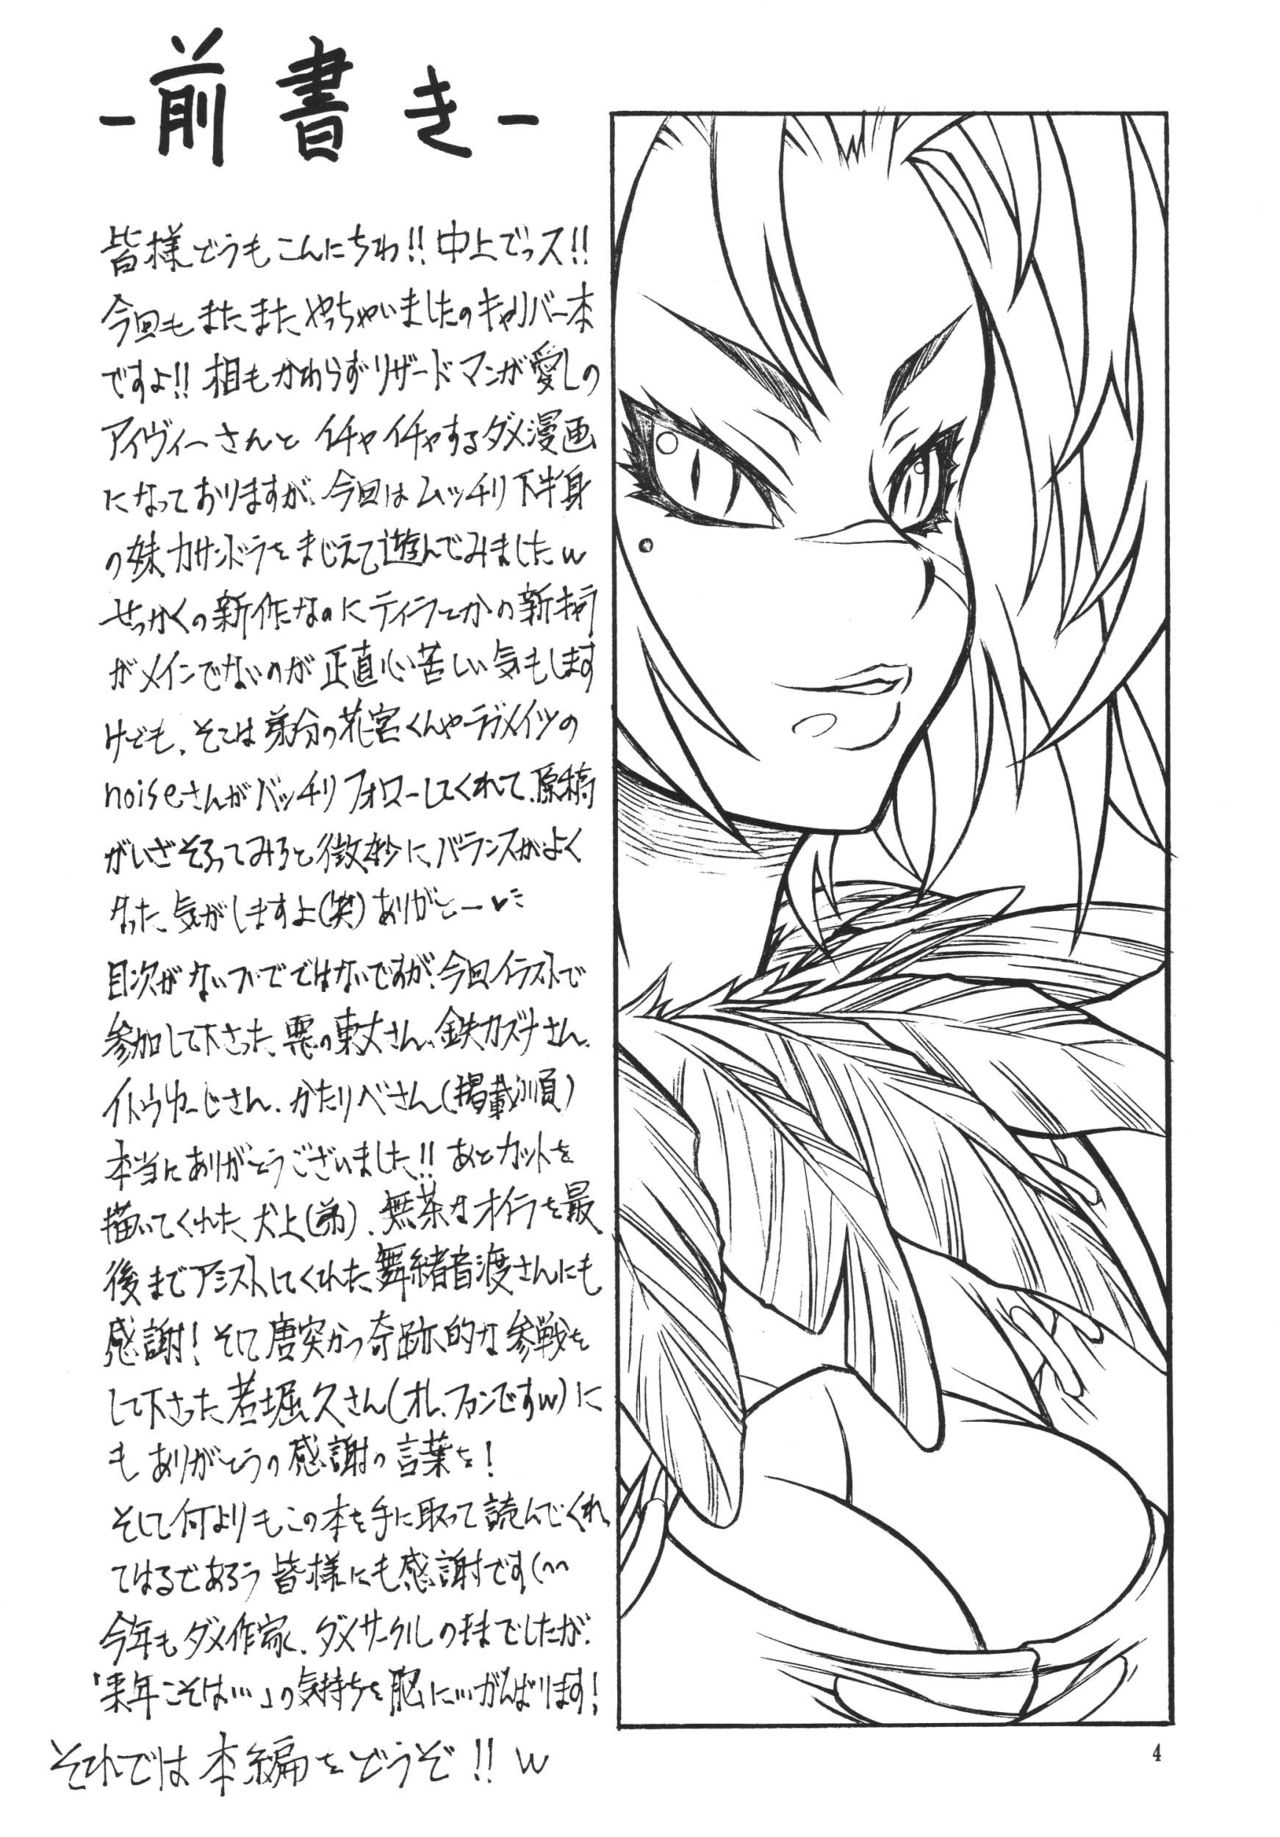 -前書き-
皆様どうもこんにちわ!!中上でっス!!
今回もまたまたやっちゃいましたのキャリバー本
ですよ!!相もかわらずリザードマンが愛しの
アイヴィーさんとイチャイチャするダメ漫画
になっておりますが、今回はムッチリ下半身
の妹、カサンドラをまじえて遊んでみましたw
せっかくの新作なのにティラとかの新キャラ
がメインでないのが正直心苦しい気もします
けども、そこは弟分の花宮くんやラブメイツの
noiseさんがバッチリフォローしてくれて、原稿
がいざそろってみると微妙に、バランスがよく
なった、気がしますよ(笑)ありがとー♥
目次がないついでではないですが、今回イラストで
参加して下さった、悪の東丈さん、鉄カズナさん、
イトウゆーじさん、かたりべさん(掲載順)
本当にありがとうございました!!あとカットを
描いてくれた、犬上(弟)、無茶なオイラを最
後までアシストしてくれた舞緒音渡さんにも
感謝!そして唐突かつ奇跡的な参戦を
して下さった若堀久さん(オレ、ファンですw)に
もありがとうの感謝の言葉を!
そして何よりもこの本を手に取って読んでくれ
てはるであろう皆様にも感謝です(^^
今年もダメ作家、ダメサークルのままでしたが、
「来年こそは…」の気持ちを胸に…がんばります!
それでは本編をどうぞ!!w
4